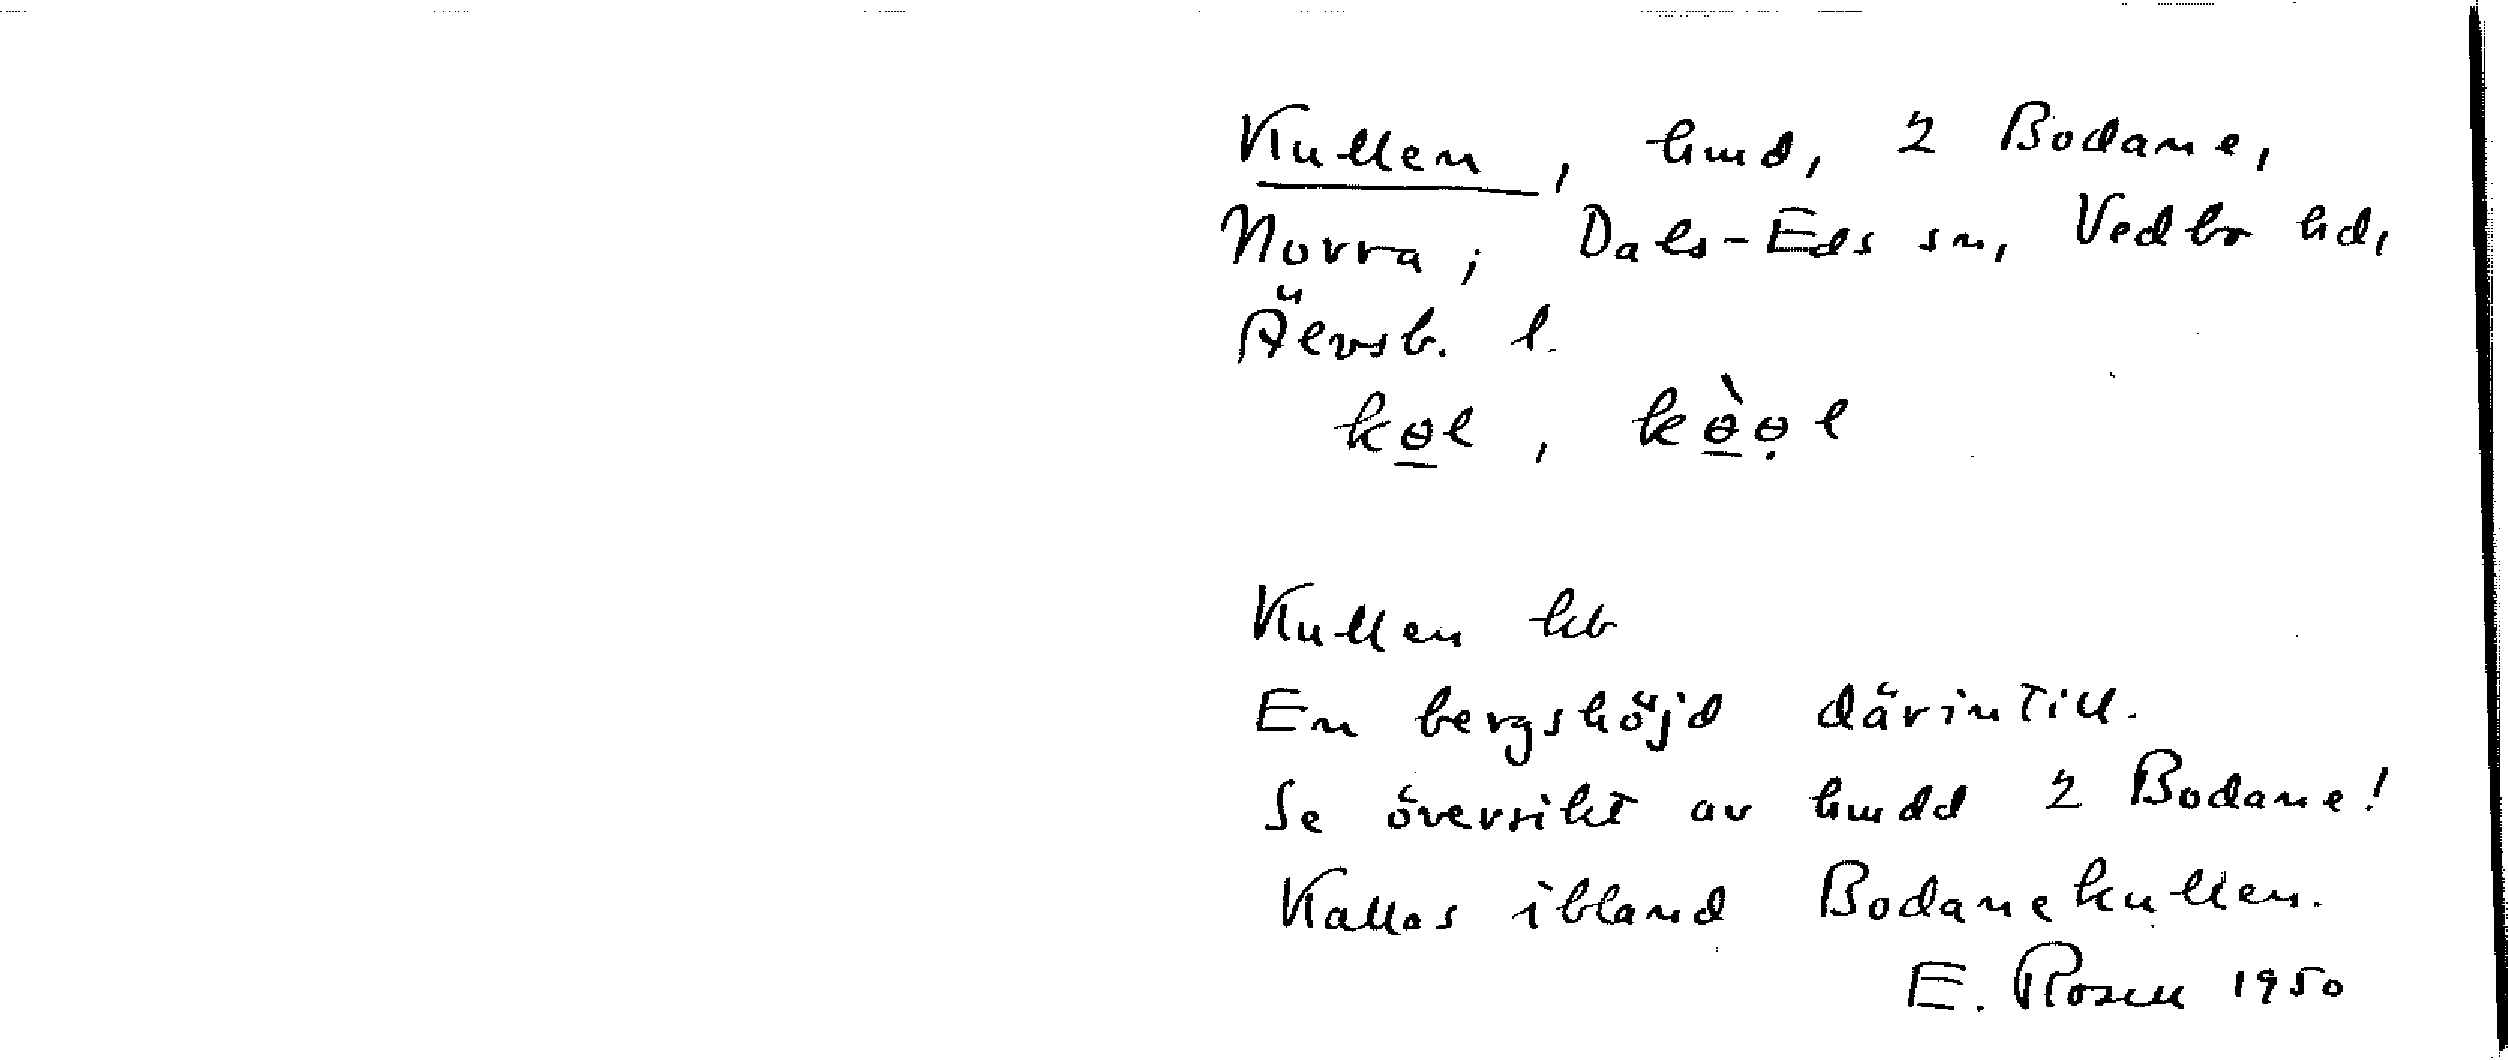 Kullen, hmd, 2 Bodane,
Norra, Dals-Eds sn, Vedbo hd,
Älvsb. l.
kɵ̲l, kɵ̲̀ɵ̣l
Kullen kb
En bergshöjd därintill.
Se översikt av hmdd 2 Bodane!
Kallas ibland Bodanekullen.
E. Rosell 1950